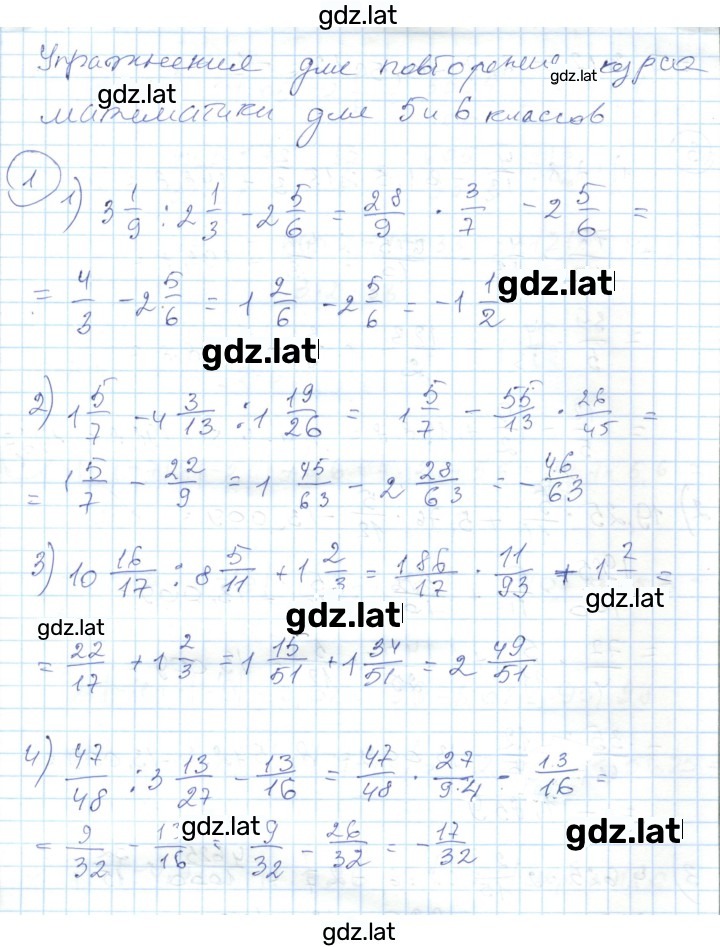 gdz.lat
Упражнения для повторения курса
gdz.lat
gdz.lat
математики для 5 и 6 классов
1
1) 3 1/9 : 2 1/3 - 2 5/6 = 28/9 · 3/7 - 2 5/6 =
= 4/3 - 2 5/6 = 1 2/6 - 2 5/6 = -1 1/2
gdz.lat
gdz.lat
2) 1 5/7 - 4 3/13 : 1 19/26 = 1 5/7 - 55/13 · 26/45 =
= 1 5/7 - 22/9 = 1 45/63 - 2 28/63 = - 46/63
3) 10 16/17 : 8 5/11 + 1 2/3 = 186/17 · 11/93 + 1 2/ =
gdz.lat
gdz.lat
gdz.lat
= 22/17 + 1 2/3 = 1 15/51 + 1 34/51 = 2 49/51
4) 47/48 : 3 13/27 - 13/16 = 47/48 · 27/94 - 13/16 =
= 9/32 - 13/16 = 9/32 - 26/32 = - 17/32
gdz.lat
gdz.lat
gdz.lat